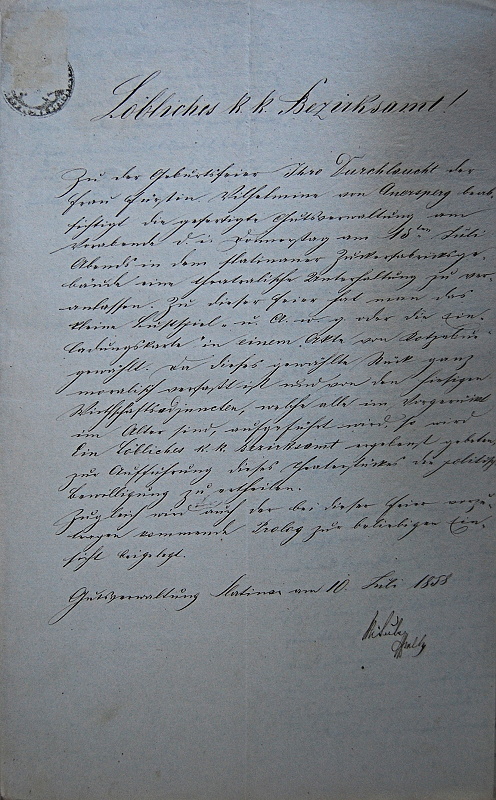 Löbliches k k Bezirksamt!
Zu der Geburtsfeier Ihro Durchlaucht der
Frau Fürstin Wilhelmine von Auersperg beab-
sichtigt die gefertigte Gutsverwaltung am
Vorabende d. i. Donnerstag am 15ten Juli
Abends in dem Slatinaner Zuckerfabriksge-
bäude eine theatralische Unterhaltung zu ver-
anlassen. Zu dieser Feier hat man das
kleine Lustspiel "U. A. w. g. oder die Ein-
ladungskarte" in einem Akte von Kotzebue
gewählt. Da dieses gewählte Stück ganz
moralisch verfaßt ist und von den hiesigen
Wirtschaftsadjuncten, welche alle im
im Alter sind, aufgeführt wird, so wird
Ein Löbliches k. k. Bezirksamt ergebenst gebeten
zur Aufführung dieses Theaterstückes die politische
Bewilligung zu ertheilen.
Zugleich wird auch der bei dieser Feier vorzu-
tragen kommende Prolog zur beliebigen Ein-
sicht beigelegt.
Gutsverwaltung Slatinan am 10. Juli 1858